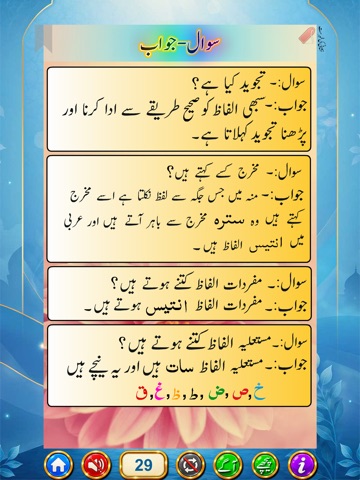 سوال-جواب
سوال:۔ تجوید کیا ہے؟
جواب:۔ سبھی الفاظ کو صحیح طریقے سے ادا کرنا اور
پڑھنا تجوید کہلاتا ہے۔
سوال:۔ مخرج کسے کہتے ہیں؟
جواب:۔ منہ میں جس جگہ سے لفظ نکلتا ہے اسے مخرج
کہتے ہیں وہ سترہ مخرج سے باہر آتے ہیں اور عربی
میں انتیس الفاظ ہیں۔
سوال:۔ مفردات الفاظ کتنے ہوتے ہیں؟
جواب:۔ مفردات الفاظ انتیس ہوتے ہیں۔
سوال:۔ مستعلیہ الفاظ کتنے ہوتے ہیں؟
جواب:۔ مستعلیہ الفاظ سات ہیں اور یہ نیچے ہیں
خ,ص,ض,ط,ظ,غ,ق
29
آگے
پیچھے
i